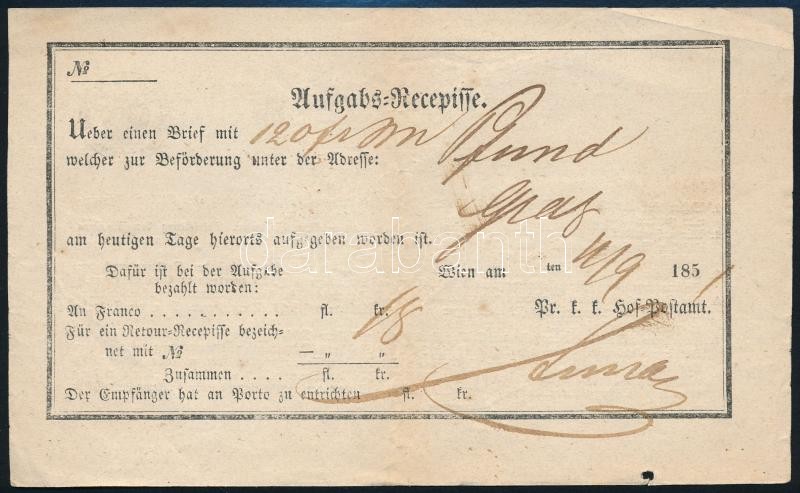 №
Aufgabs-Recepisse.
Ueber einen Brief mit 120 fr
welcher zur Beförderung unter der Adresse: Pfund
Graz
am heutigen Tage hierorts aufgegeben worden ist.
darabanth
Dafür ist bei der Aufgabe Wien am ten 185
bezahlt worden:
An Franco . . . . . . . . . . . fl. 18 kr. Pr. k. k. Hof-Postamt.
Für ein Retour-Recepisse bezeich-
net mit № — „ „
Zusammen . . . . fl. kr.
Der Empfänger hat an Porto zu entrichten fl. kr.